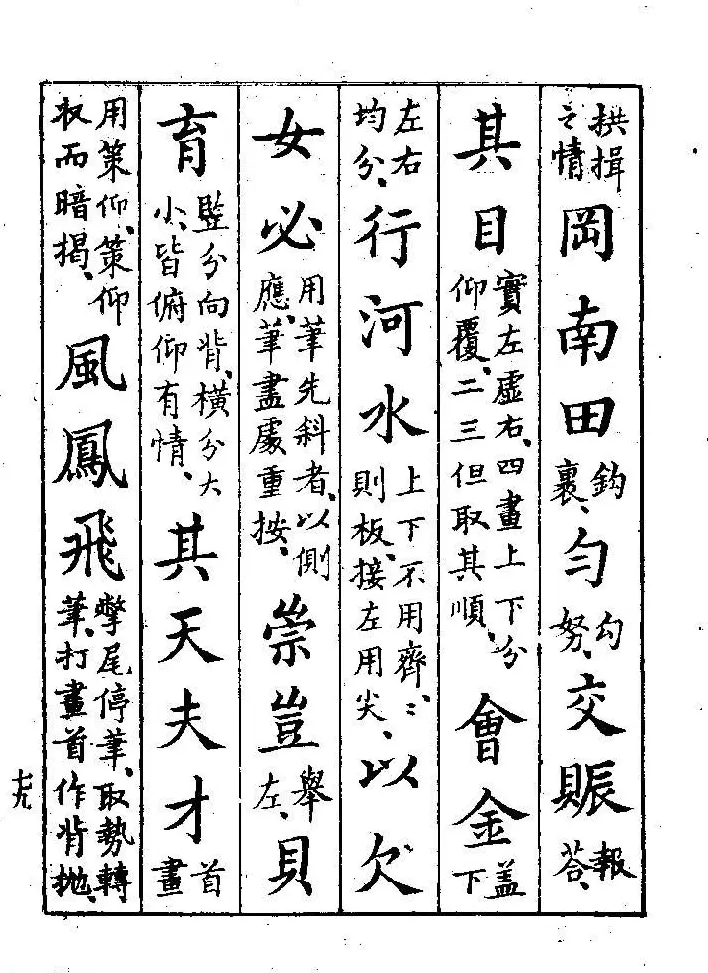 拱揖之情岡南田鈎裹、勻勾努、交賑報荅、
其目實左虛右、四畫上下分仰覆、二三但取其順、會金盖下
左右均分、行河水上下不用齊、〻則板、接左用尖、以欠
女必用筆先斜者、以側應、筆盡處重按、崇豈舉左、貝
育監分向背、橫分大小、皆俯仰有情、其天夫才首畫
用策仰、策仰收而暗揭、風鳳飛撆尾停筆、取勢轉筆、打畫首作背抛、
七九